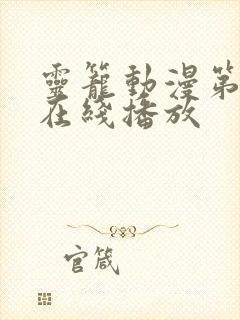 靈籠動漫第
在綫播放
官箴